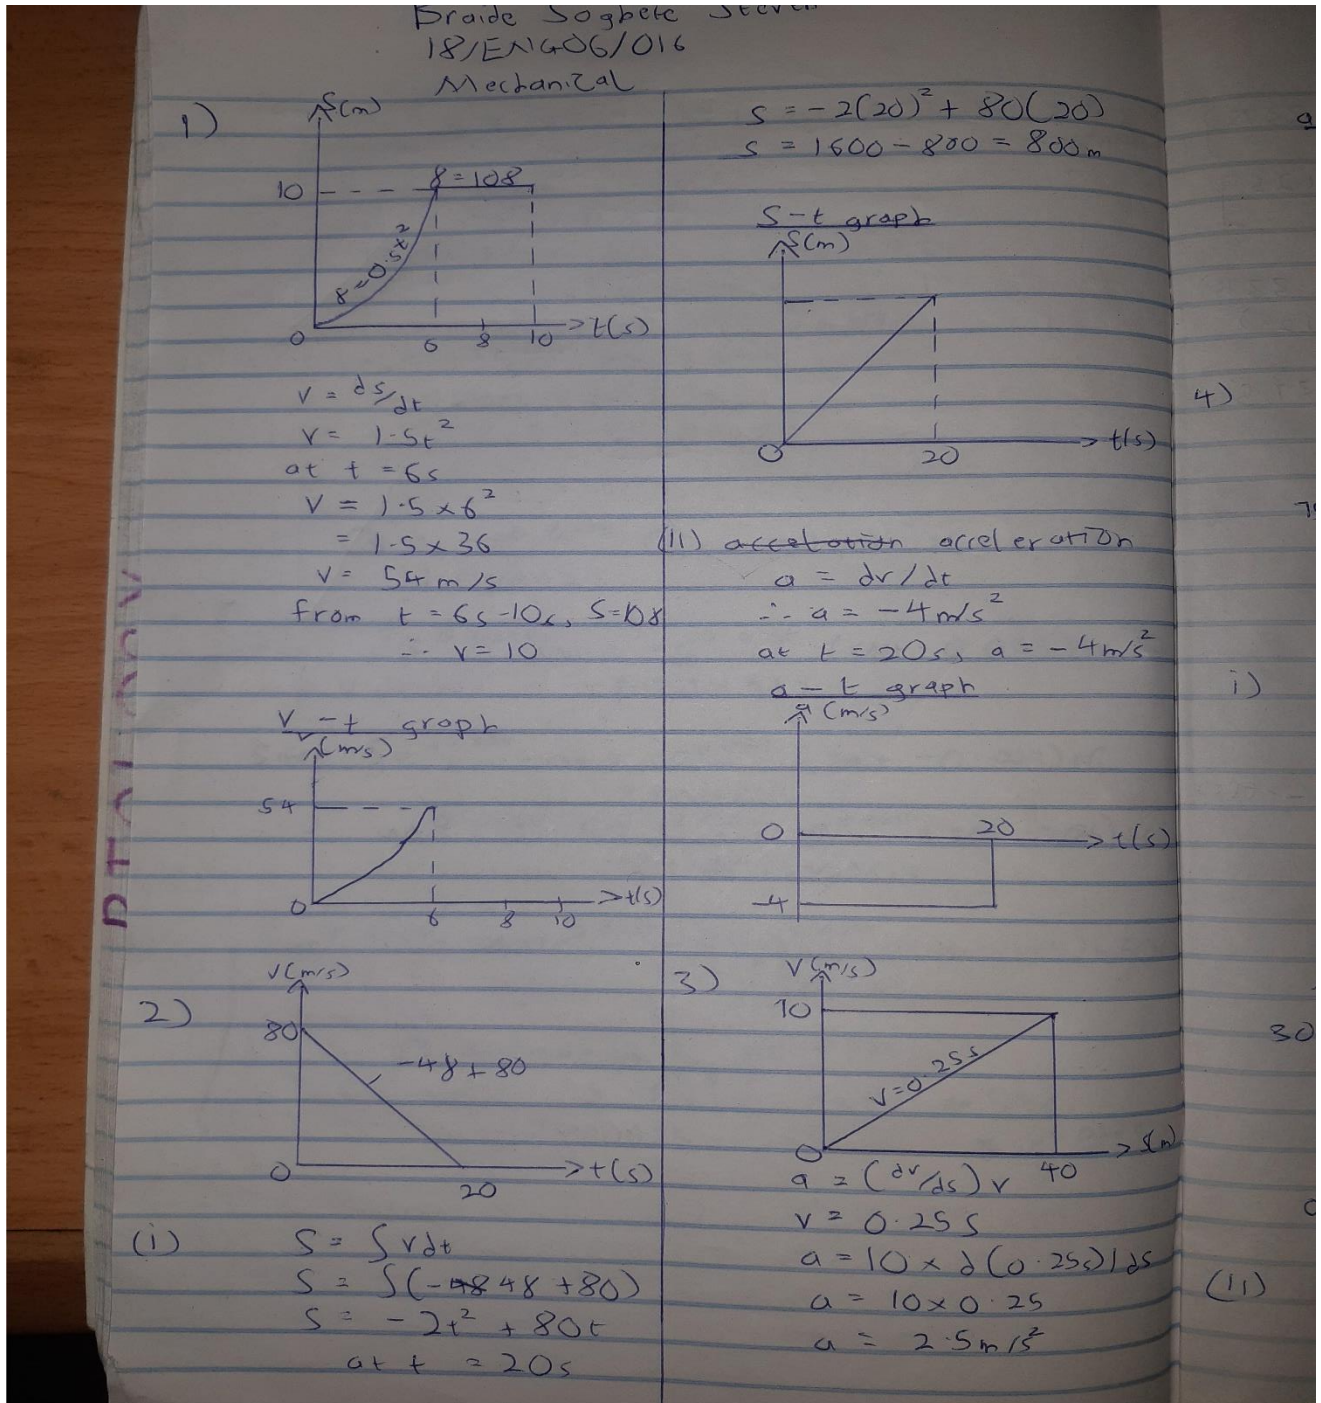 Braide Sogbete Steven
18/ENG06/016
Mechanical
1)
S(m)
10
8=108
8=0.5t²
0
6
8
10
t(s)
v = ds/dt
v = 1.5t²
at t = 6s
v = 1.5 x 6²
= 1.5 x 36
v = 54 m/s
from t = 6s-10s, S=108
∴ v = 10
v-t graph
v(m/s)
54
0
6
8
10
t(s)
2)
v(m/s)
80
-48+80
0
20
t(s)
(i)
S = ∫vdt
S = ∫(-48 +80)
S = -2t² + 80t
at t = 20s
s = -2(20)² + 80(20)
s = 1600 - 800 = 800m
S-t graph
S(m)
0
20
t(s)
(ii) acceleration
a = dv/dt
∴ a = -4m/s²
at t = 20s, a = -4m/s²
a-t graph
a (m/s)
0
20
t(s)
-4
3)
v(m/s)
10
v=0.25s
0
40
s(m)
a = (dv/ds) v
v = 0.25 s
a = 10 x d(0.25s)/ds
a = 10 x 0.25
a = 2.5m/s²
4)
i)
30
(ii)